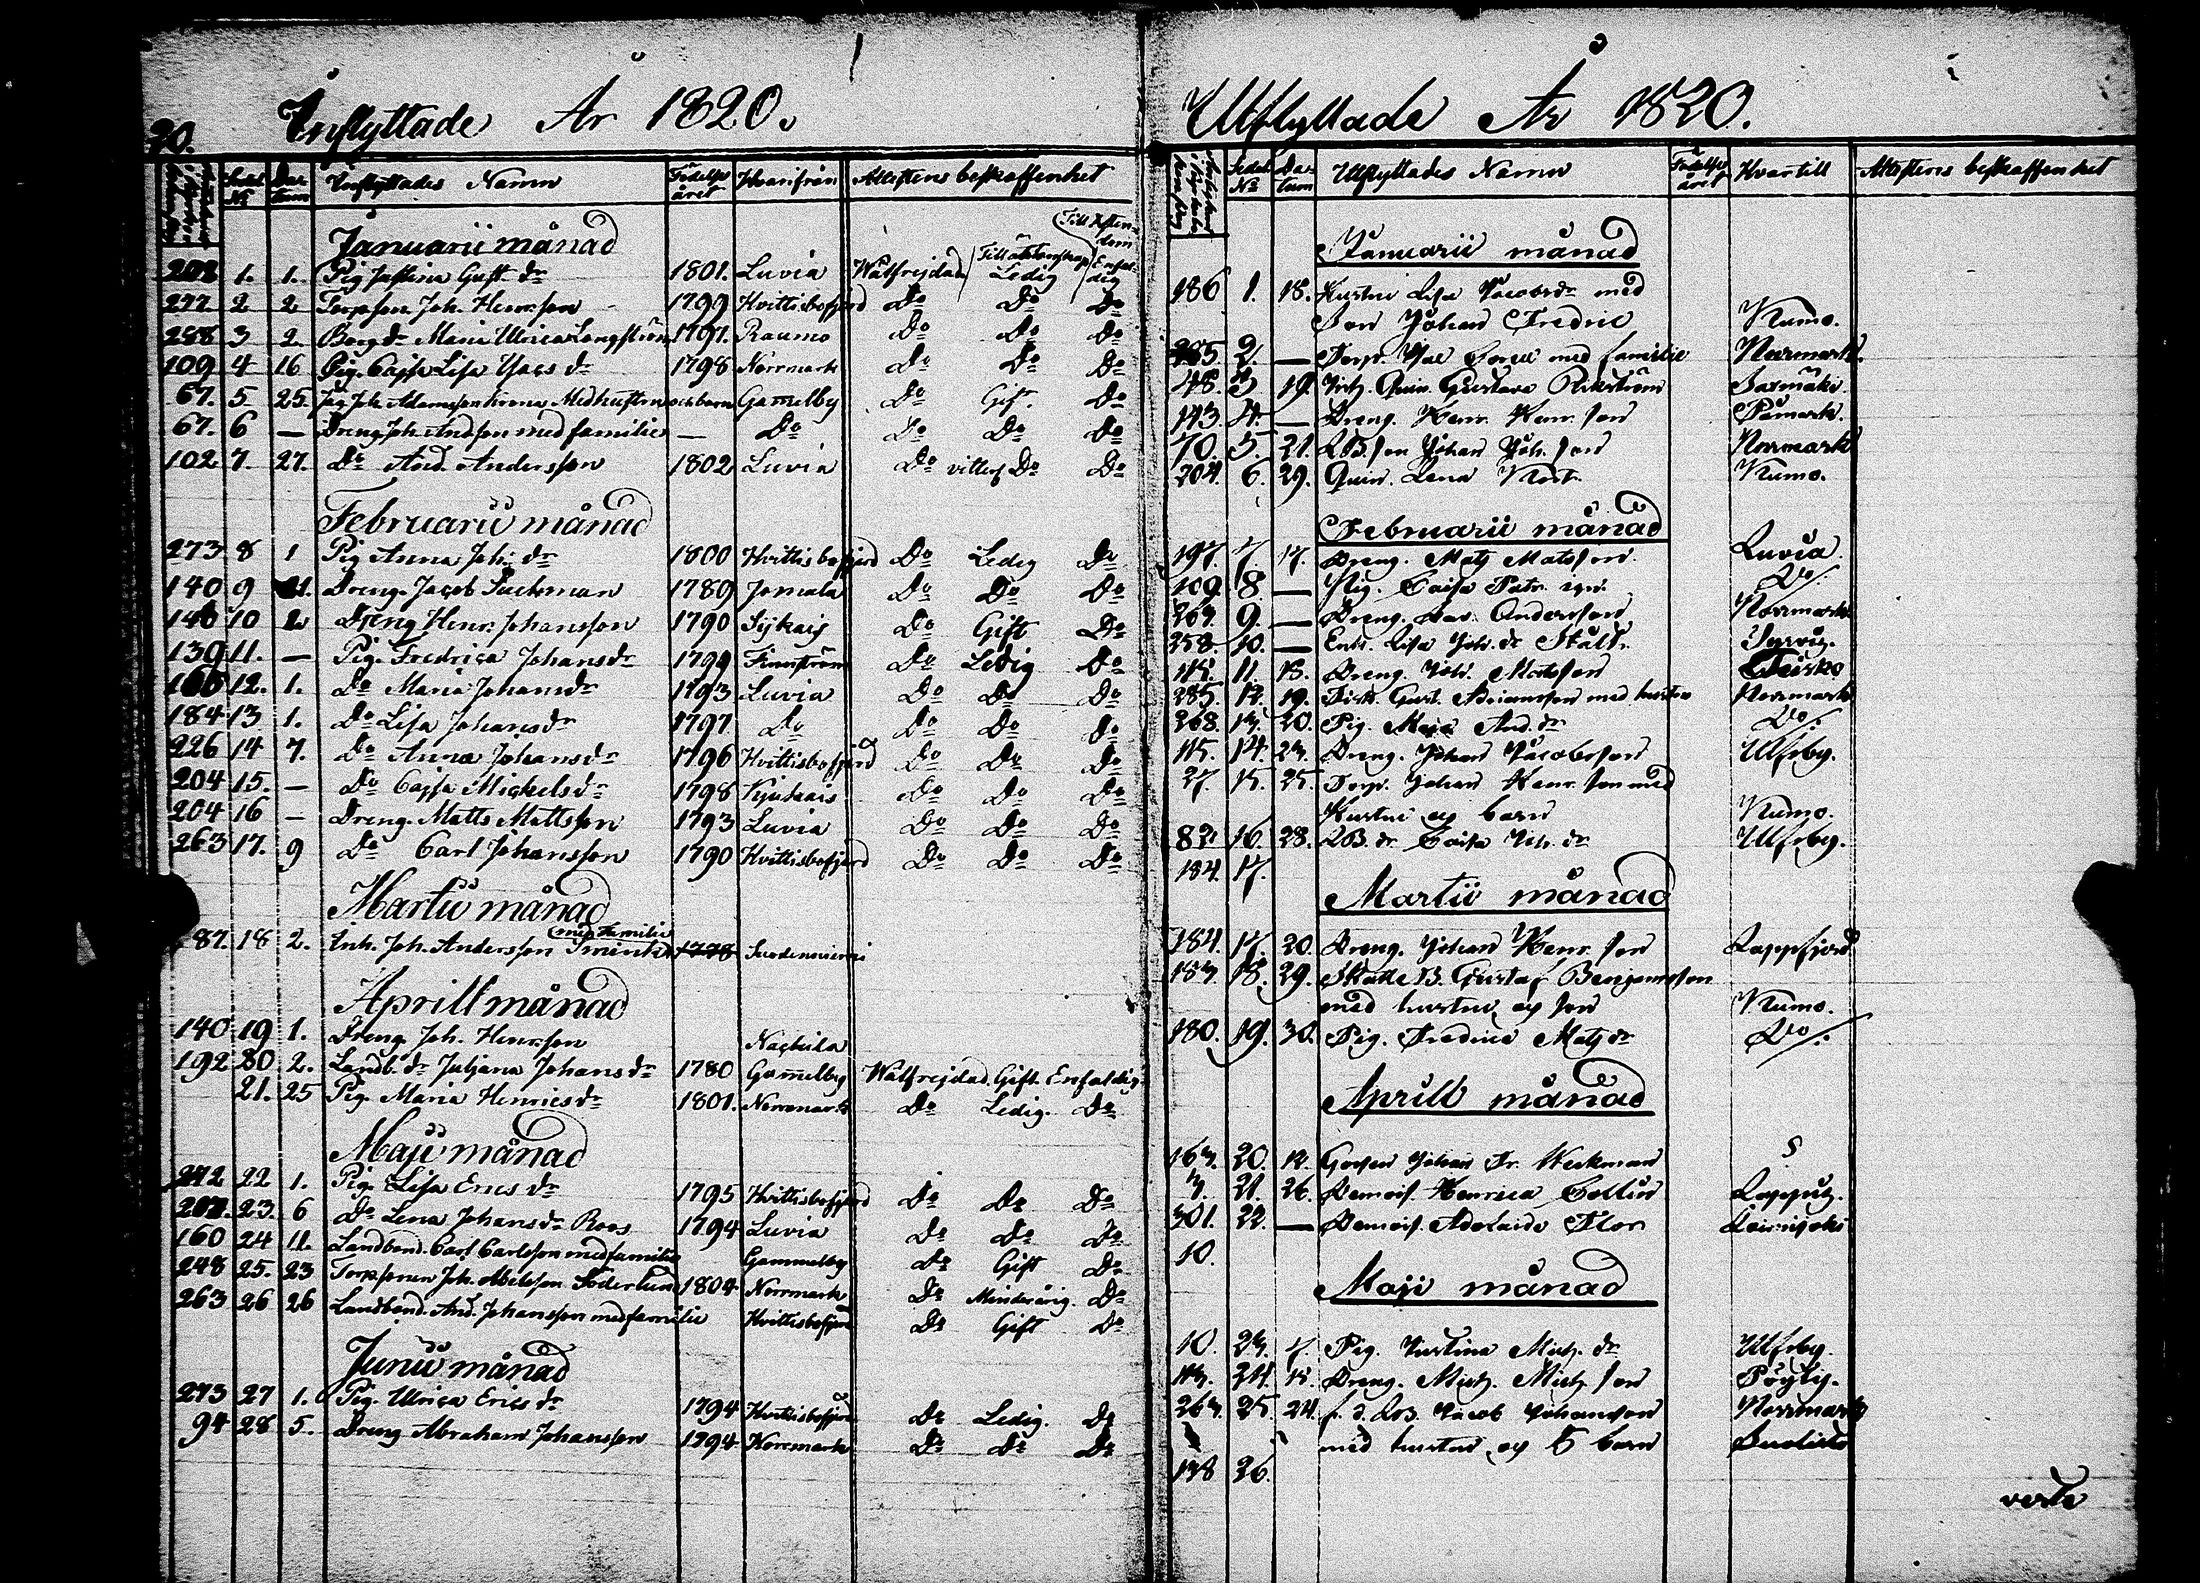 20.
Inflyttade År 1820.
Sedel № Datum Inflyttades Namn Födelse året Hvarifrån Attestens beskaffenhet
Januarii månad
Till ächtenskap Till Christendom
208 1. 1. Pig Justina Gust. dr 1801. Luvia Wälfrejdad Ledig Enfaldig
277 2 2 Torpson Joh. Henr.son 1799 Hvittisbofjerd Do Do Do
288 3 2 Borg dr Maria Ulrica Långström 1797. Raumo Do Do Do
109 4 16 Pig. Cajsa Lisa Isacs dr 1798 Norrmark Do Do Do
67. 5 25. Joh. Adamsson Med hustru och barn Gamelby Do Gift. Do
67. 6 — Dreng Joh. Andsson med familie — Do Do Do Do
102 7. 27. Do And. Andersson 1802 Luvia Do Do Do
Februarii månad
273 8 1 Pig Anna Joh. dr 1800 Hvittisbofjerd Do Ledig Do
140 9 Dreng. Jacob Suckman 1789 Jomala Do Do Do
140 10 2 Dreng Henr. Johansson 1790 Do Gift Do
139 11. — Pig. Fredrica Johansdr 1799 Finnström Do Ledig Do
12. 1. Do Maria Johansdr 1793 Luvia Do Do Do
184 13 1. Do Lisa Johansdr 1797 Do Do Do Do
226 14 7. Do Anna Johansdr 1796 Hvittisbofjerd Do Do Do
204 15. — Do Cajsa Mickelsdr 1798 Do Do Do
204 16 — Dreng. Matts Mattsson 1793 Luvia Do Do Do
263 17. 9 Do Carl Johansson 1790 Hvittisbofjerd Do Do Do
Martii månad
med Familie
87. 18 2. Inh. Joh. Andersson 1778 Suodenniemi
Aprill månad
140 19 1. Dreng Joh. Henrsson Nackila
192 20 2. Landb. dr Juljana Johansdr 1780 Gamelby Wälfrejdad. Gift. Enfaldig.
21. 25 Pig. Maria Henricsdr 1801. Norrmark Do Ledig. Do
Maji månad
242 22 1. Pig. Lisa Erics dr 1795 Hvittisbofjerd Do Do Do
23. 6 Do Lena Johansdr Roos 1794 Luvia Do Do Do
160 24 11. Landbond. Carl Carlsson med familie Gammelby Do Gift Do
248 25. 23 Torpsonen Joh. Abelsson Söderlund 1804 Norrmark Do Minderårig. Do
263 26 26 Landbond. And. Johansson med familie Hvittisbofjerd Do Gift Do
Junii månad
273 27 1. Pig. Ulrica Erics dr 1794 Hvittisbofjerd Do Ledig. Do
94 28 5. Dreng Abraham Johansson 1794 Norrmark Do Do Do
Utflyttade År 1820.
Sedel № Datum Utflyttades Namn Födelse året Hvartill Attestens beskaffenhet
Januarii månad
186 1. 18. Hustru Lisa Jacobsdr med
Son Johan Fredric Kumo.
285. 2. — Torp. Isac med familie Norrmark.
48. 3 19. Quin. Gustava Ekström Sasmäki.
143. 4. — Dreng. Henr. Henr. son Påmark.
70. 5. 21. LB. son Johan Joh. son Norrmark
204. 6. 29. Quin. Lena Kumo.
Februarii månad
197. 7. 17. Dreng. Matz Matsson. Luvia.
109. 8. — Pig. Caisa Do/.
263. 9. — Dreng. Andersson Norrmark
258. 10. — Enk. Lisa Joh. dr Stålt.
11. 18. Dreng. Joh. Matsson Teisko
285. 12. 19. Gust. Adriansson med hustru Norrmark
268. 13. 20. Pig. Maja And. dr Do/.
115. 14. 23. Dreng. Johan Jacobsson Ulfsby.
27. 15. 25. Torp. Johan Henr. son med
Hustru og barn Kumo.
82. 16. 28. LB. dr Caisa Joh. dr Ulfsby.
184. 17.
Martii månad
184. 17. 20. Dreng. Johan Henr. son Lappfjerd
183. 18. 29. Skatte B. Gustaf Benjamsson
med hustru og son Kumo.
180. 19. 30. Pig. Fredrica Matz dr Do/.
Aprill månad
163. 20. 12. Johan Fr. Weckman S
3. 21. 26. Demois. Henrica Lappwz.
301. 22. — Demois. Adelaide Flor
10.
Maji månad
10. 23. 7. Pig. Justina Mich. dr Ulfsby.
24. Dreng. Mich. Mich. son Pöytis.
263. 25. 24. f. d. LB. Jacob Johansson Norrmark
med hustru og 5 barn
138 26.
verte